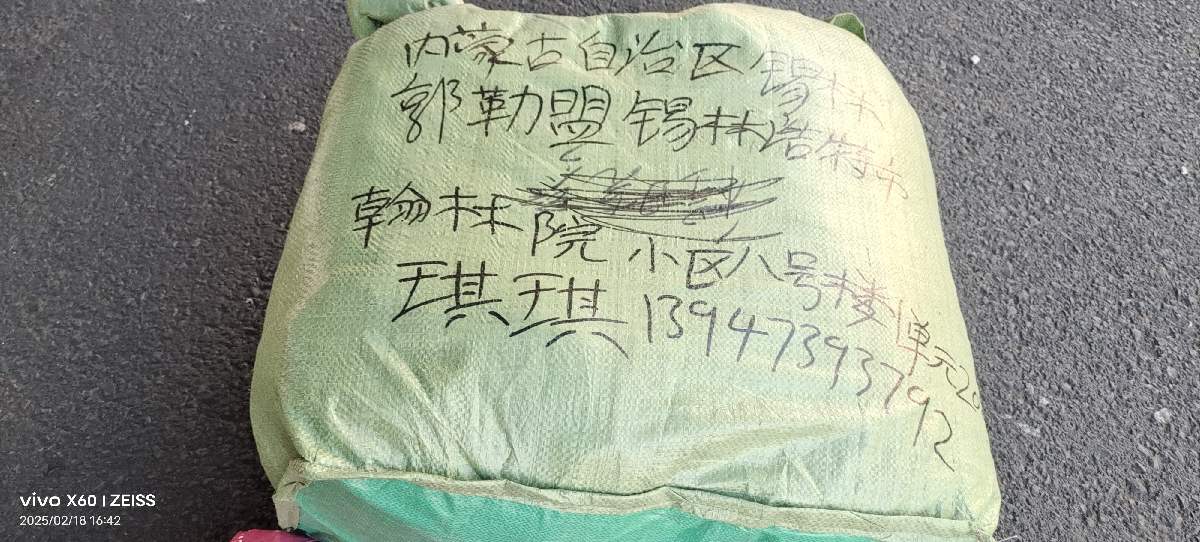 内蒙古自治区锡林
郭勒盟锡林浩特市
翰林院小区八号楼1单元20
琪琪 13947393792
vivo X60 | ZEISS
2025/02/18 16:42